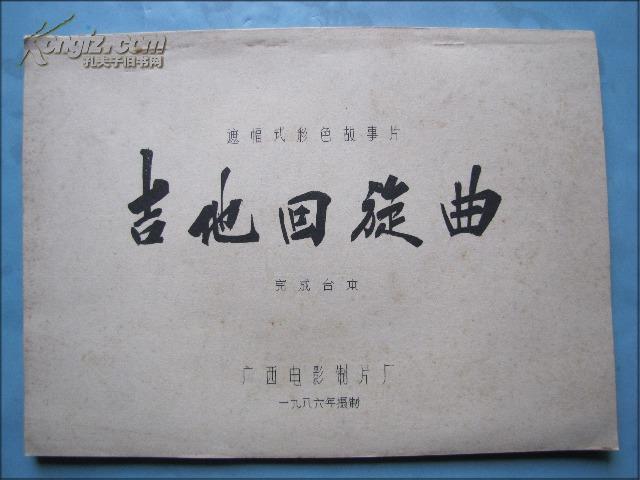 Kongfz.com
孔夫子旧书网
遮幅式彩色故事片
吉他回旋曲
完成台本
广西电影制片厂
一九八六年摄制